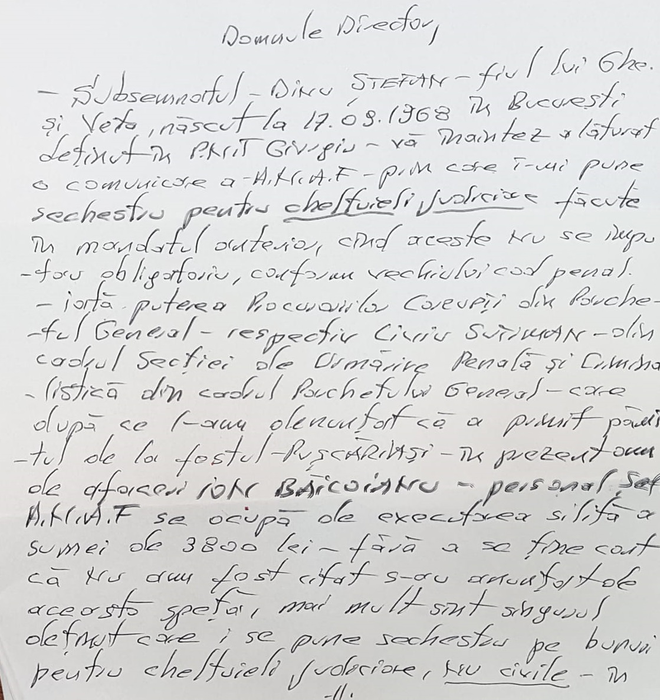 Domnule Director,
- Subsemnatul - DINU STEFAN - fiul lui Ghe.
și Veta, născut la 17.09.1968 în București
deținut în P.N.T Giurgiu - vă înaintez alăturat
o comunicare a - A.N.A.F - prin care î-mi pune
sechestru pentru cheltuieli judiciare făcute
în mandatul anterior, cînd aceste nu se impu
-tau obligatoriu, conform vechiului cod penal.
- iartă puterea Procurorilor Corupți din Parche-
-tul General - respectiv - din
cadrul Secției de Urmărire Penală și Crimina
-listică din cadrul Parchetului General - care
după ce l-am denunțat că a primit pămî
-tul de la fostul - PUȘCĂRIAȘI - în prezent om
de afaceri ION BĂICOIANU - personal, Șef
A.N.A.F se ocupă de executarea silită a
sumei de 3800 lei - fără a se ține cont
că nu am fost citat s-au anunțat de
aceasta speță, mai mult sînt singurul
deținut care i se pune sechestru pe bunuri
pentru cheltuieli judiciare, NU civile - în
-//-